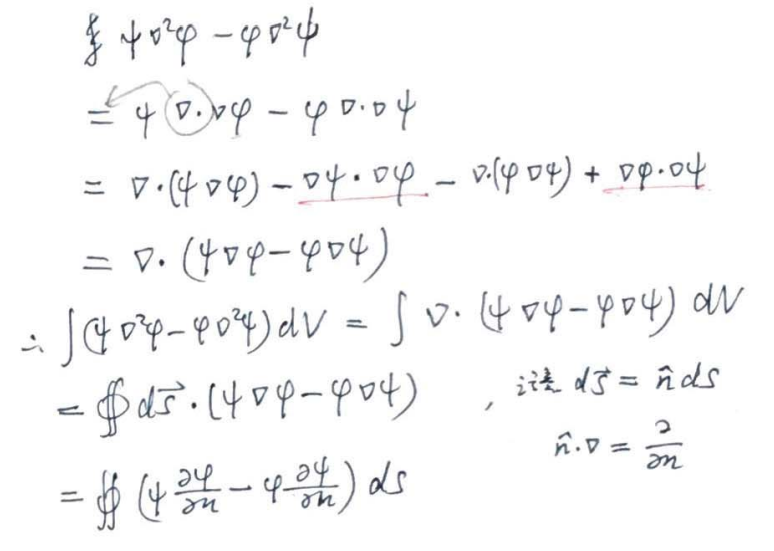 ψ∇²φ − φ∇²ψ
= ψ∇·∇φ − φ∇·∇ψ
= ∇·(ψ∇φ) − ∇ψ·∇φ − ∇·(φ∇ψ) + ∇φ·∇ψ
= ∇·(ψ∇φ − φ∇ψ)
∴ ∫(ψ∇²φ − φ∇²ψ)dV = ∫∇·(ψ∇φ − φ∇ψ) dV
= ∯ds⃗·(ψ∇φ − φ∇ψ) , 注意 ds⃗ = n̂ds
n̂·∇ = ∂/∂n
= ∯(ψ ∂φ/∂n − φ ∂ψ/∂n) ds